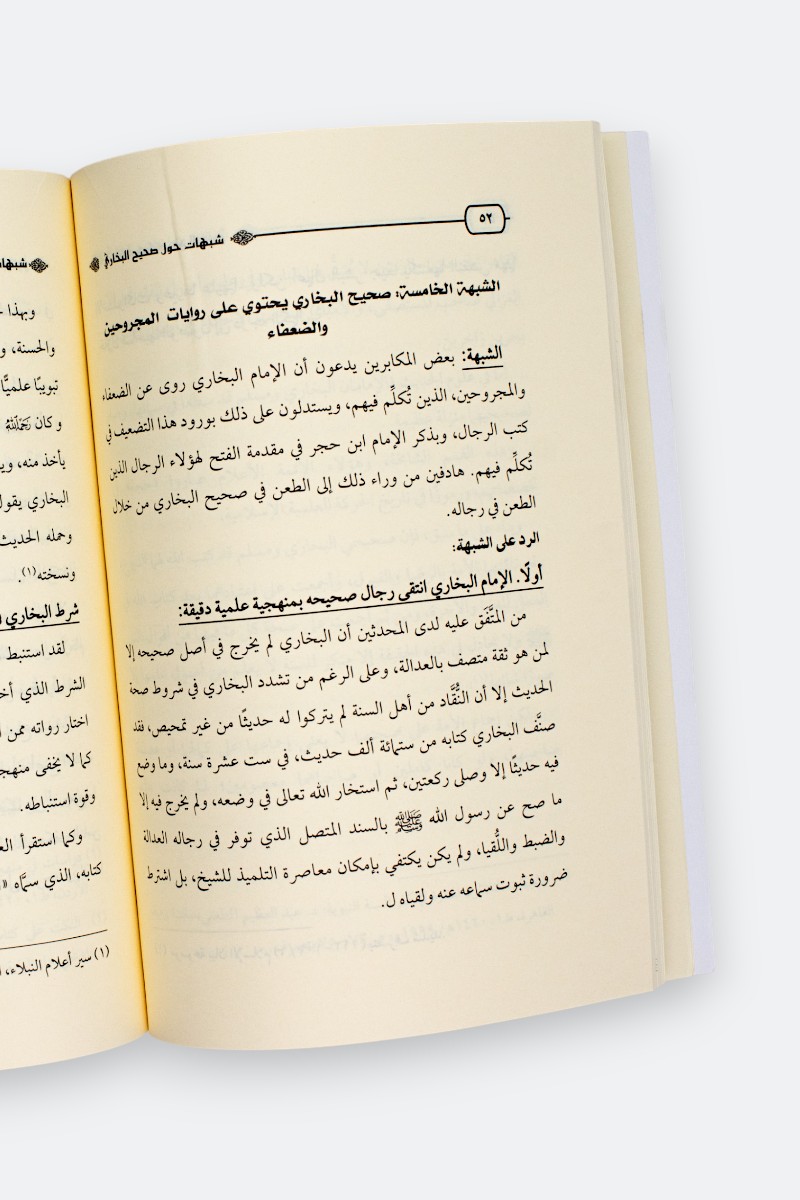 ٥٢
شبهات حول صحيح البخاري
الشبهة الخامسة: صحيح البخاري يحتوي على روايات المجروحين
والضعفاء
الشبهة: بعض المكابرين يدعون أن الإمام البخاري روى عن الضعفاء
والمجروحين، الذين تُكلِّم فيهم، ويستدلون على ذلك بورود هذا التضعيف في
كتب الرجال، وبذكر الإمام ابن حجر في مقدمة الفتح لهؤلاء الرجال الذين
تُكلِّم فيهم. هادفين من وراء ذلك إلى الطعن في صحيح البخاري من خلال
الطعن في رجاله.
الرد على الشبهة:
أولًا. الإمام البخاري انتقى رجال صحيحه بمنهجية علمية دقيقة:
من المتَّفَق عليه لدى المحدثين أن البخاري لم يخرج في أصل صحيحه إلا
لمن هو ثقة متصف بالعدالة، وعلى الرغم من تشدد البخاري في شروط صحة
الحديث إلا أن النُّقَّاد من أهل السنة لم يتركوا له حديثًا من غير تمحيص، فقد
صنَّف البخاري كتابه من ستمائة ألف حديث، في ست عشرة سنة، وما وضع
فيه حديثًا إلا وصلى ركعتين، ثم استخار الله تعالى في وضعه، ولم يخرج فيه إلا
ما صح عن رسول الله ﷺ بالسند المتصل الذي توفر في رجاله العدالة
والضبط واللُّقيا، ولم يكن يكتفي بإمكان معاصرة التلميذ للشيخ، بل اشترط
ضرورة ثبوت سماعه عنه ولقياه ل.
وبهذا
والحسنة، و
تبويبًا علميًّا
وكان رحمه الله
يأخذ منه، وي
البخاري يقول
وحمله الحديث
ونسخته(١).
شرط البخاري
لقد استنبط
الشرط الذي أخ
اختار رواته ممن
كما لا يخفى منهج
وقوة استنباطه.
وكما استقرأ الع
كتابه، الذي سمَّاه «
(١) سير أعلام النبلاء،